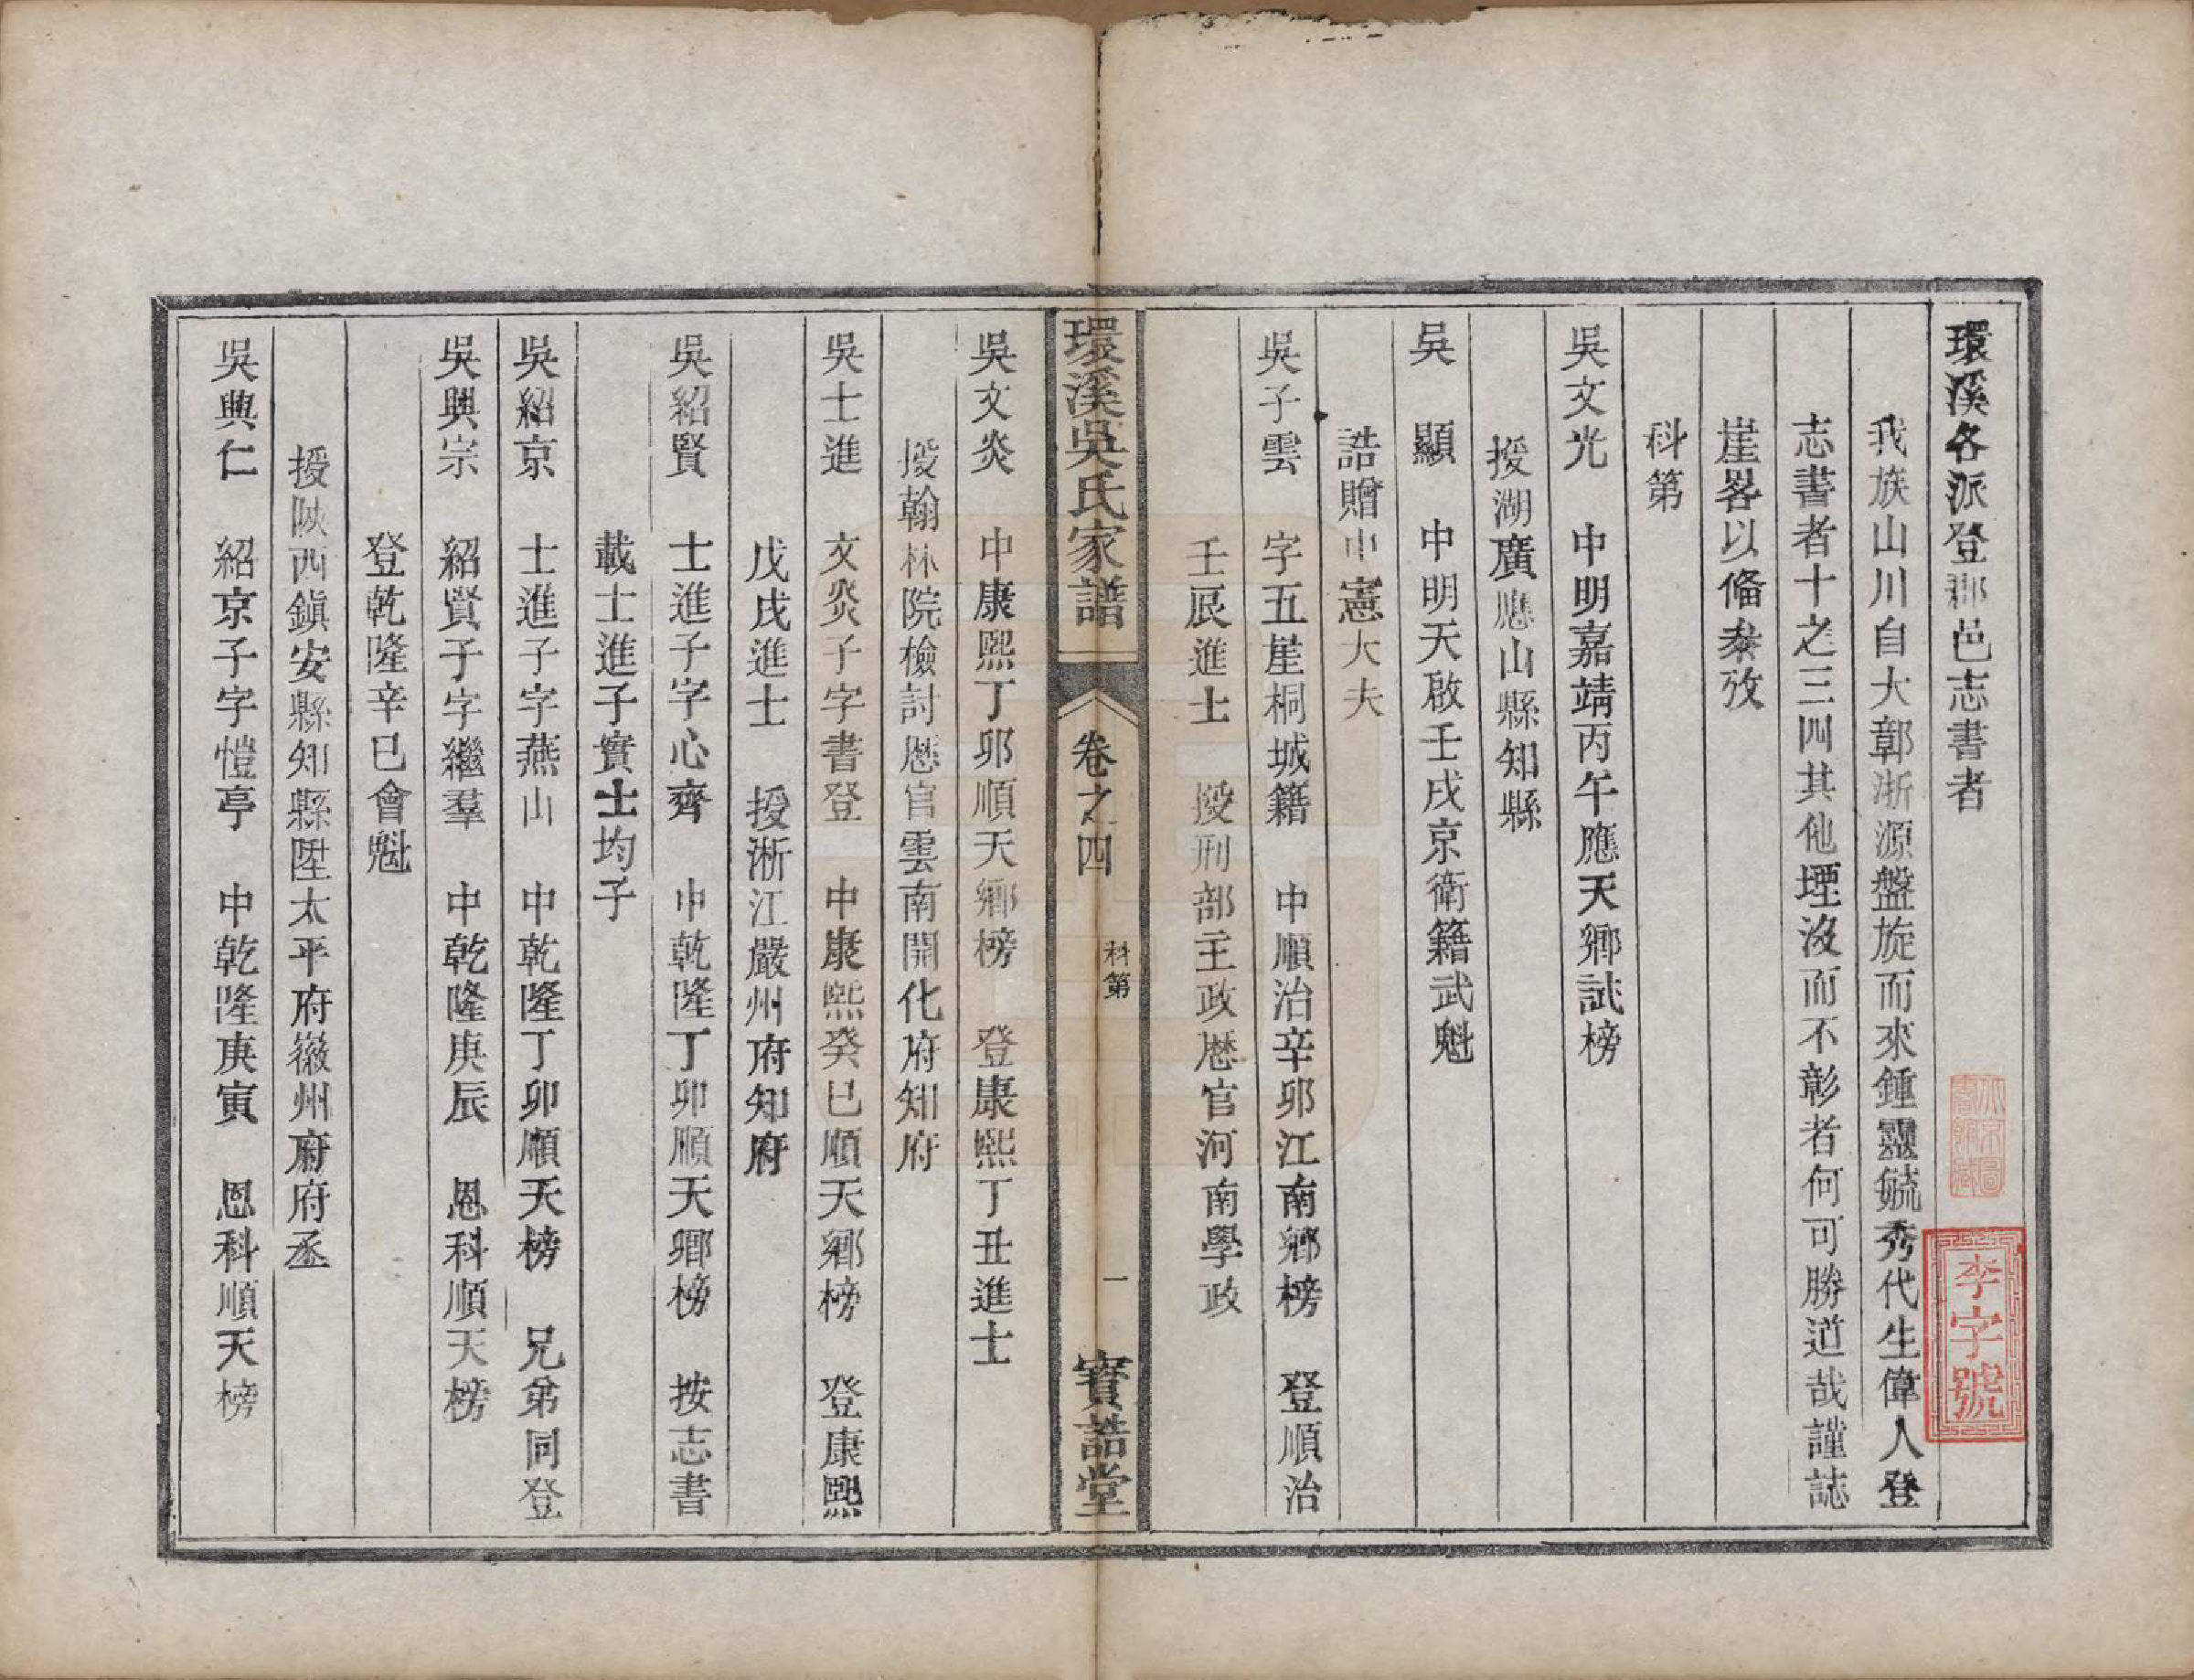 環溪各派登郡邑志書者
我族山川自大鄣浙源盤旋而來鍾靈毓秀代生偉人登
志書者十之三四其他堙沒而不彰者何可勝道哉謹誌
崖畧以俻叅攷
科第
吳文光　中明嘉靖丙午應天鄉試榜
授湖廣應山縣知縣
吳　顯　中明天啟壬戌京衛籍武魁
誥贈中憲大夫
吳子雲　字五崖桐城籍　中順治辛卯江南鄉榜　登順治
壬辰進士　授刑部主政歷官河南學政
環溪吳氏家譜　卷之四　科第　一　寶誥堂
吳文炎　中康熙丁卯順天鄉榜　登康熙丁丑進士
授翰林院檢討歷官雲南開化府知府
吳士進　文炎子字書登　中康熙癸巳順天鄉榜　登康熙
戊戌進士　授淅江嚴州府知府
吳紹賢　士進子字心齊　中乾隆丁卯順天鄉榜　按志書
載士進子實士均子
吳紹京　士進子字燕山　中乾隆丁卯順天榜　兄弟同登
吳興宗　紹賢子字繼羣　中乾隆庚辰　恩科順天榜
登乾隆辛巳會魁
授陝西鎮安縣知縣陞太平府徽州府府丞
吳興仁　紹京子字愷亭　中乾隆庚寅　恩科順天榜
李字號